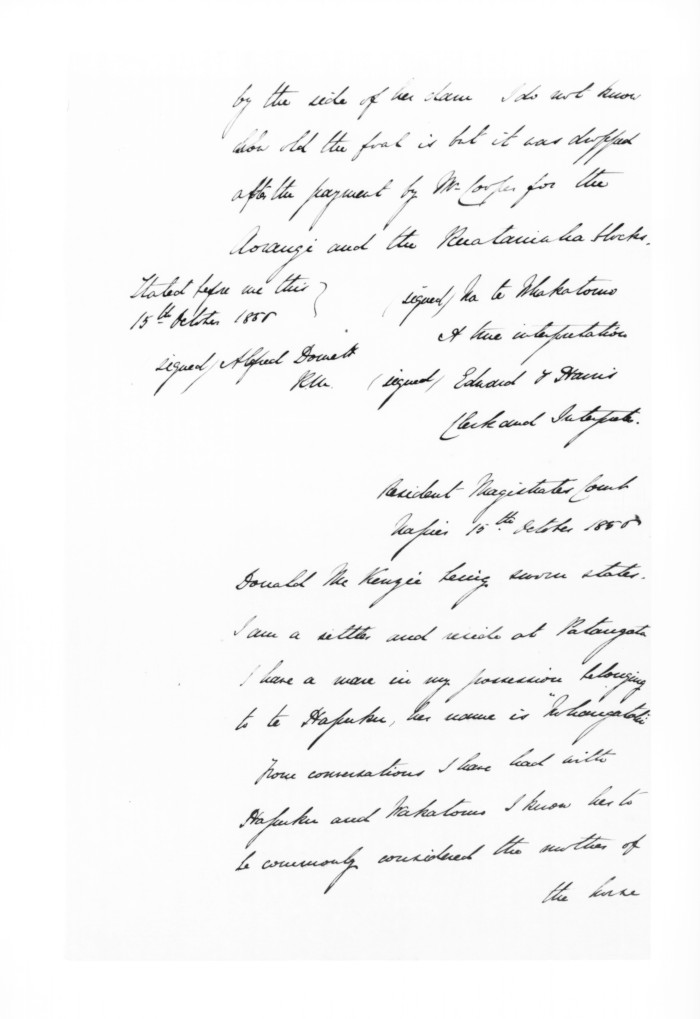 by the side of her dam I do not know
how old the foal is but it was dropped
after the payment by Mr Cooper for the
Aorangi and the Ruataniwha blocks.
Stated before me this
15th October 1858
(signed) Na te Whakatomo
A true interpretation
signed) Alfred Domett
R.M.
(signed) Edward Harris
Clerk and Interpreter.
Resident Magistrates Court
Napier 15th October 1858
Donald McKenzie being sworn states.
I am a settler and reside at Patangata
I have a mare in my possession belonging
to te Hapuku, her name is "
From conversations I have had with
Hapuku and Wakatomo I know her to
be commonly considered the mother of
the horse